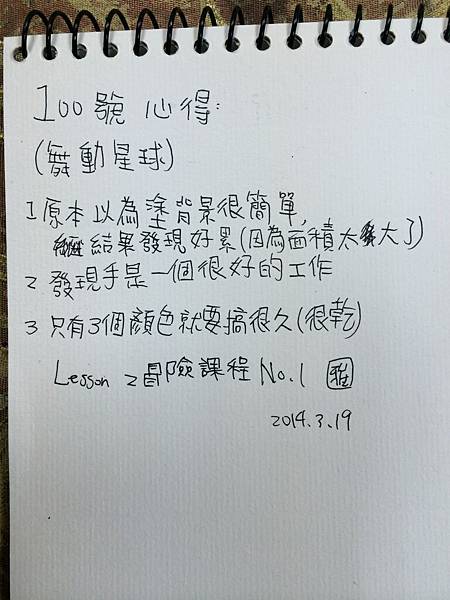 100號 心得:
(舞動星球)
1 原本以為塗背景很簡單,
結果發現好累(因為面積太大了)
2 發現手是一個很好的工作
3 只有3個顏色就要搞很久(很乾)
Lesson 2 冒險課程 No.1 雅
2014.3.19